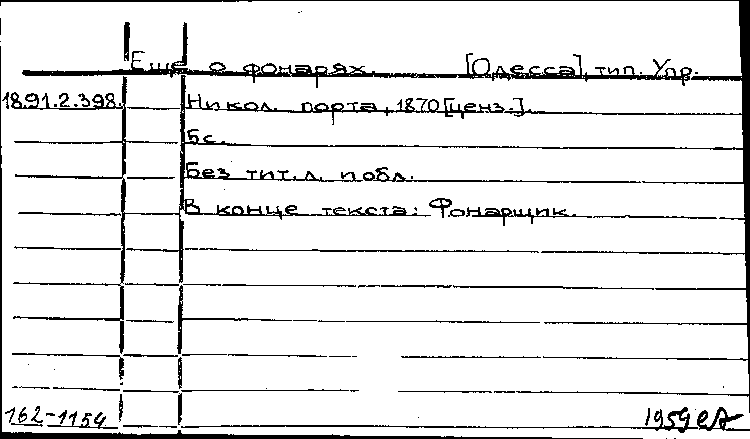 Еще о фонарях. [Одесса], тип. Упр.
18.91.2.398. Никол. порта, 1870 [ценз.].
5с.
Без тит.л. и обл.
В конце текста: Фонарщик.
162-1154 1959